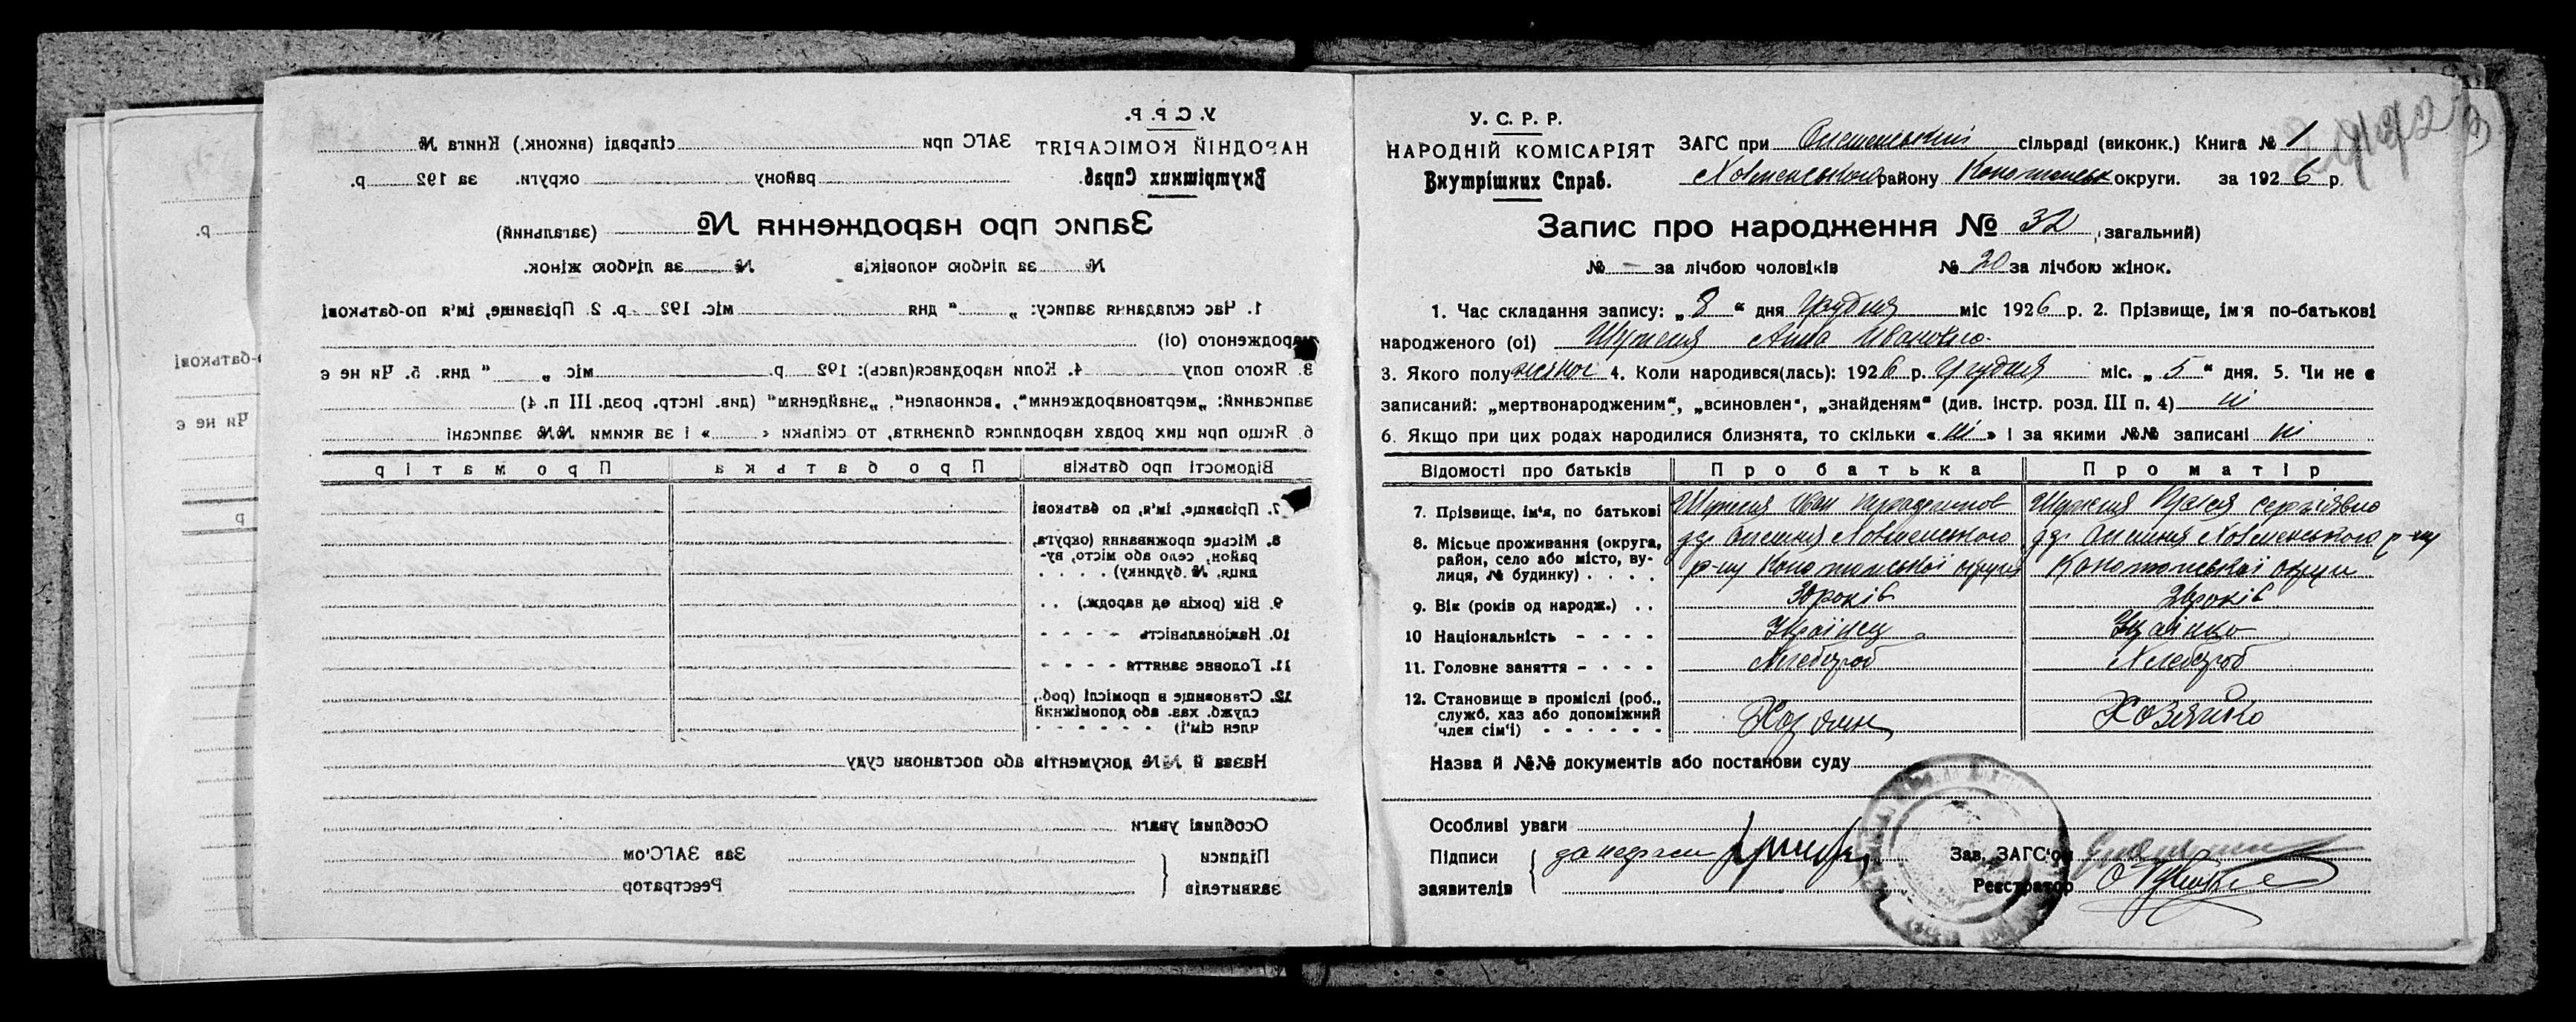 У. С. Р. Р.
НАРОДНІЙ КОМІСАРІЯТ
Внутрішних Справ.
ЗАГС при сільраді (виконк.) Книга №
району округи. за 192 р.
Запис про народження № (загальний)
№ за лічбою чоловіків № за лічбою жінок.
1. Час складання запису: „ “ дня міс. 192 р. 2. Прізвище, ім'я по-батькові
народженого (ої)
3. Якого полу 4. Коли народився(лась): 192 р. міс „ “ дня. 5. Чи не є
записаний: „мертвонародженим“, „всиновлен“, „знайденям“ (див. інстр. розд. III п. 4)
6. Якщо при цих родах народилися близнята, то скільки « » і за якими №№ записані
Відомості про батьків Про батька Про матір
7. Прізвище, ім'я, по батькові
8. Місьце проживання (округа,
район, село або місто, ву-
лиця, № будинку) . . . .
9. Вік (років од народж.) . .
10. Національність - - - -
11. Головне заняття - - - -
12. Становище в промісלі (роб.,
служб. хаз. або допоміжний
член сім'ї) - - - - - -
Назва й №№ документів або постанови суду
Особливі уваги
Підписи Зав ЗАГС'ом
заявителів Реєстратор
р.
о-батькові
Чи не є
р
У. С. Р. Р.
НАРОДНІЙ КОМІСАРІЯТ
Внутрішних Справ.
ЗАГС при сільраді (виконк.) Книга № 1
району Конотопськ округи. за 1926 р.
Запис про народження № 32 (загальний)
№ - за лічбою чоловіків № 20 за лічбою жінок.
1. Час складання запису: „ 8 “ дня Грудня міс 1926 р. 2. Прізвище, ім'я по-батькові
народженого (ої) Анна Ивановна
3. Якого полу жіноч 4. Коли народився(лась): 1926 р. Грудня міс. „ 5 “ дня. 5. Чи не є
записаний: „мертвонародженим“, „всиновлен“, „знайденям“ (див. інстр. розд. III п. 4) ні
6. Якщо при цих родах народилися близнята, то скільки « ні » і за якими №№ записані ні
Відомості про батьків Про батька Про матір
7. Прізвище, ім'я, по батькові Иван Сергіївна
8. Місьце проживання (округа,
район, село або місто, ву-
лиця, № будинку) . . . . р-ну Конотопської округи р-ну Конотопської округи
9. Вік (років од народж.) . . 30 років 26 років
10 Національність - - - - Українец Украінка
11. Головне заняття - - - - Хлебороб Хлебороб
12. Становище в проміслі (роб.,
служб. хаз або допоміжний
член сім'ї) - - - - - - Хозяин Хозяйка
Назва й №№ документів або постанови суду
Особливі уваги
Підписи Зав. ЗАГС'ом
заявителів Реєстратор